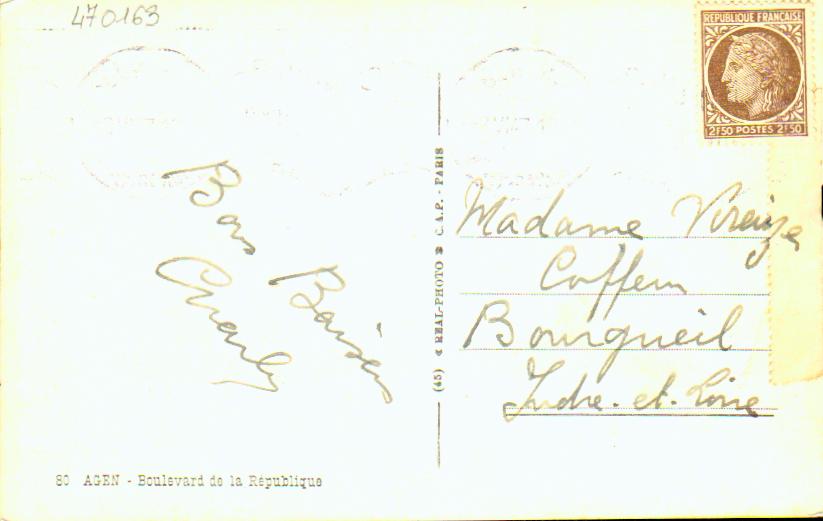 470163
REPUBLIQUE FRANÇAISE
2F50 POSTES 2F50
Bons Baisers
Charly
(45) « REAL-PHOTO » C.A.P. - PARIS
Madame
Bourgueil
Indre-et-Loire
80 AGEN - Boulevard de la République